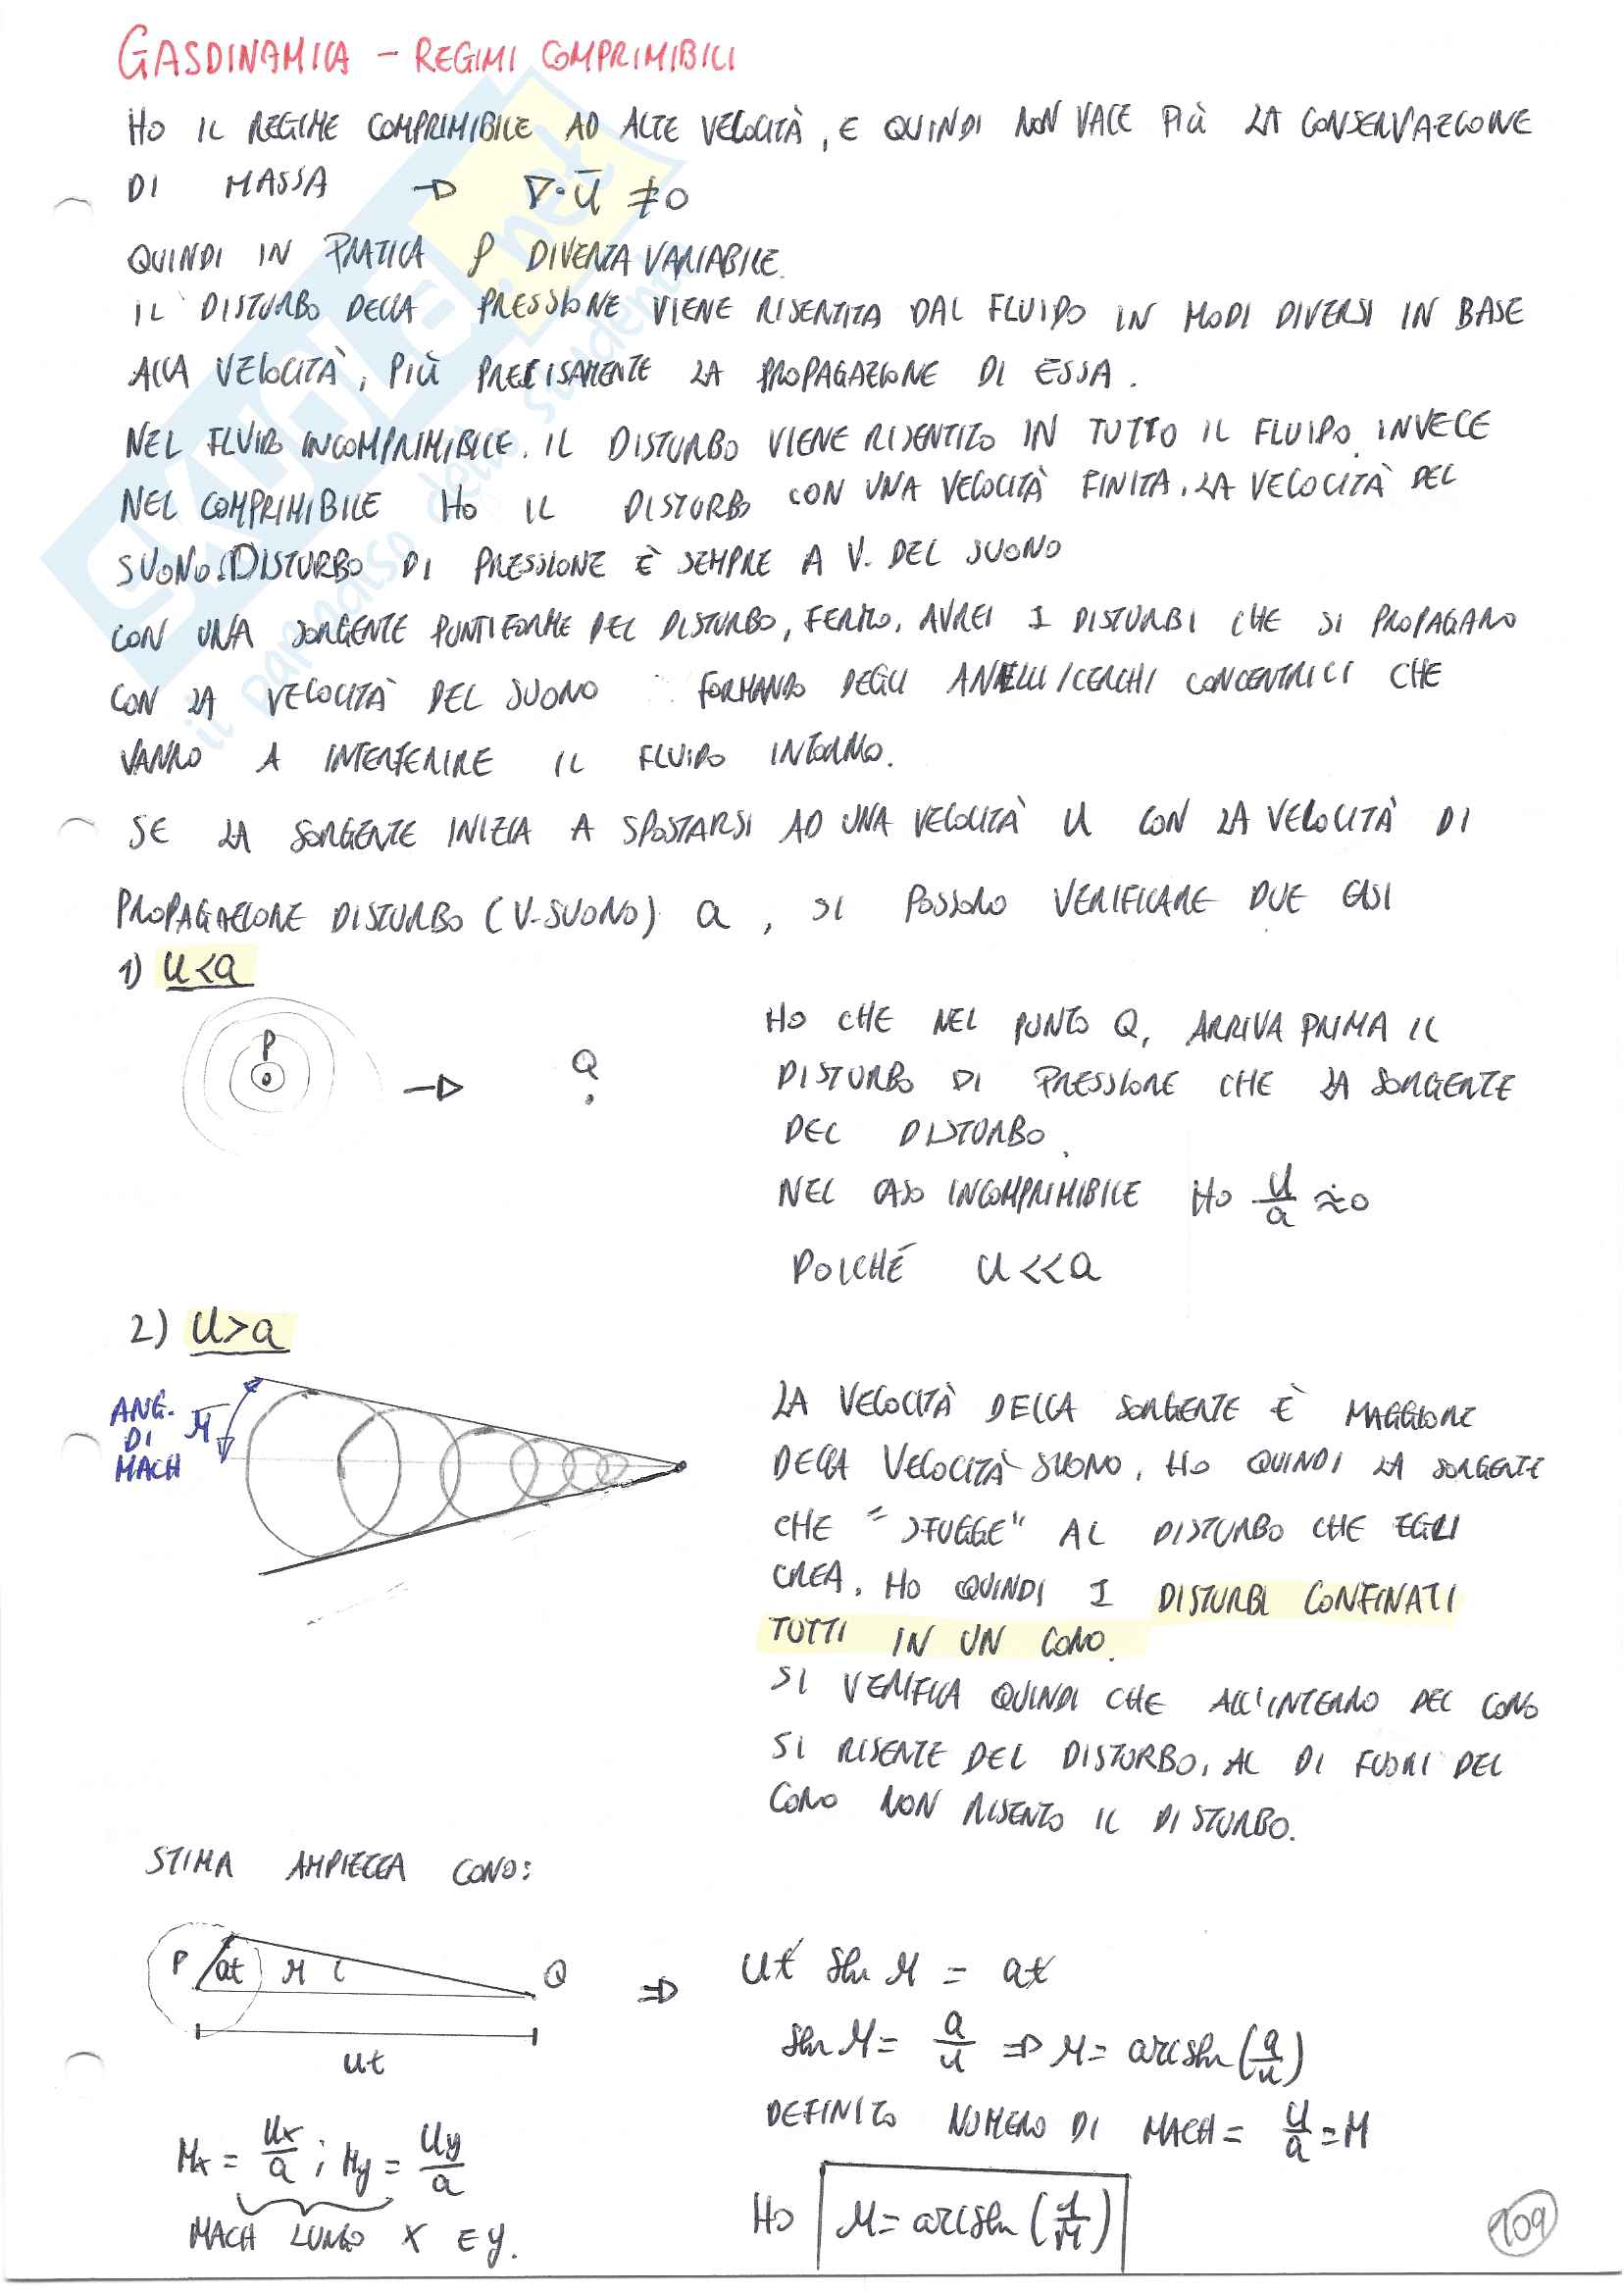 GASDINAMICA - REGIMI COMPRIMIBILI
HO IL REGIME COMPRIMIBILE AD ALTE VELOCITÀ, E QUINDI NON VALE PIÙ LA CONSERVAZIONE
DI MASSA → ∇·ū ≠0
QUINDI IN PRATICA ρ DIVENTA VARIABILE.
IL DISTURBO DELLA PRESSIONE VIENE RISENTITA DAL FLUIDO IN MODI DIVERSI IN BASE
ALLA VELOCITÀ, PIÙ PRECISAMENTE LA PROPAGAZIONE DI ESSA.
NEL FLUIDO INCOMPRIMIBILE. IL DISTURBO VIENE RISENTITO IN TUTTO IL FLUIDO, INVECE
NEL COMPRIMIBILE HO IL DISTURBO CON UNA VELOCITÀ FINITA. LA VELOCITÀ DEL
SUONO. DISTURBO DI PRESSIONE È SEMPRE A V. DEL SUONO
CON UNA SORGENTE PUNTIFORME DEL DISTURBO, FERMO, AVREI I DISTURBI CHE SI PROPAGANO
CON LA VELOCITÀ DEL SUONO FORMANDO DEGLI ANELLI/CERCHI CONCENTRICI CHE
VANNO A INTERFERIRE IL FLUIDO INTORNO.
SE LA SORGENTE INIZIA A SPOSTARSI AD UNA VELOCITÀ U CON LA VELOCITÀ DI
PROPAGAZIONE DISTURBO (V-SUONO) a, SI POSSONO VERIFICARE DUE CASI
1) U<a
P
→
Q
HO CHE NEL PUNTO Q, ARRIVA PRIMA IL
DISTURBO DI PRESSIONE CHE LA SORGENTE
DEL DISTURBO.
NEL CASO INCOMPRIMIBILE HO U/a ≈0
POICHÉ U<<a
2) U>a
ANG.
DI
MACH
μ
LA VELOCITÀ DELLA SORGENTE È MAGGIORE
DELLA VELOCITÀ SUONO, HO QUINDI LA SORGENTE
CHE "SFUGGE" AL DISTURBO CHE EGLI
CREA. HO QUINDI I DISTURBI CONFINATI
TUTTI IN UN CONO.
SI VERIFICA QUINDI CHE ALL'INTERNO DEL CONO
SI RISENTE DEL DISTURBO, AL DI FUORI DEL
CONO NON RISENTO IL DISTURBO.
STIMA AMPIEZZA CONO:
P at μ Q
Ut
⇒ Ut sin μ = at
sin μ = a/u ⇒ μ = arcsin(a/u)
DEFINITO NUMERO DI MACH = U/a = M
Mx = Ux/a ; My = Uy/a
MACH LUNGO X E y.
HO μ = arcsin(1/M)
109
SKUOLA.net
il paradiso dello studente